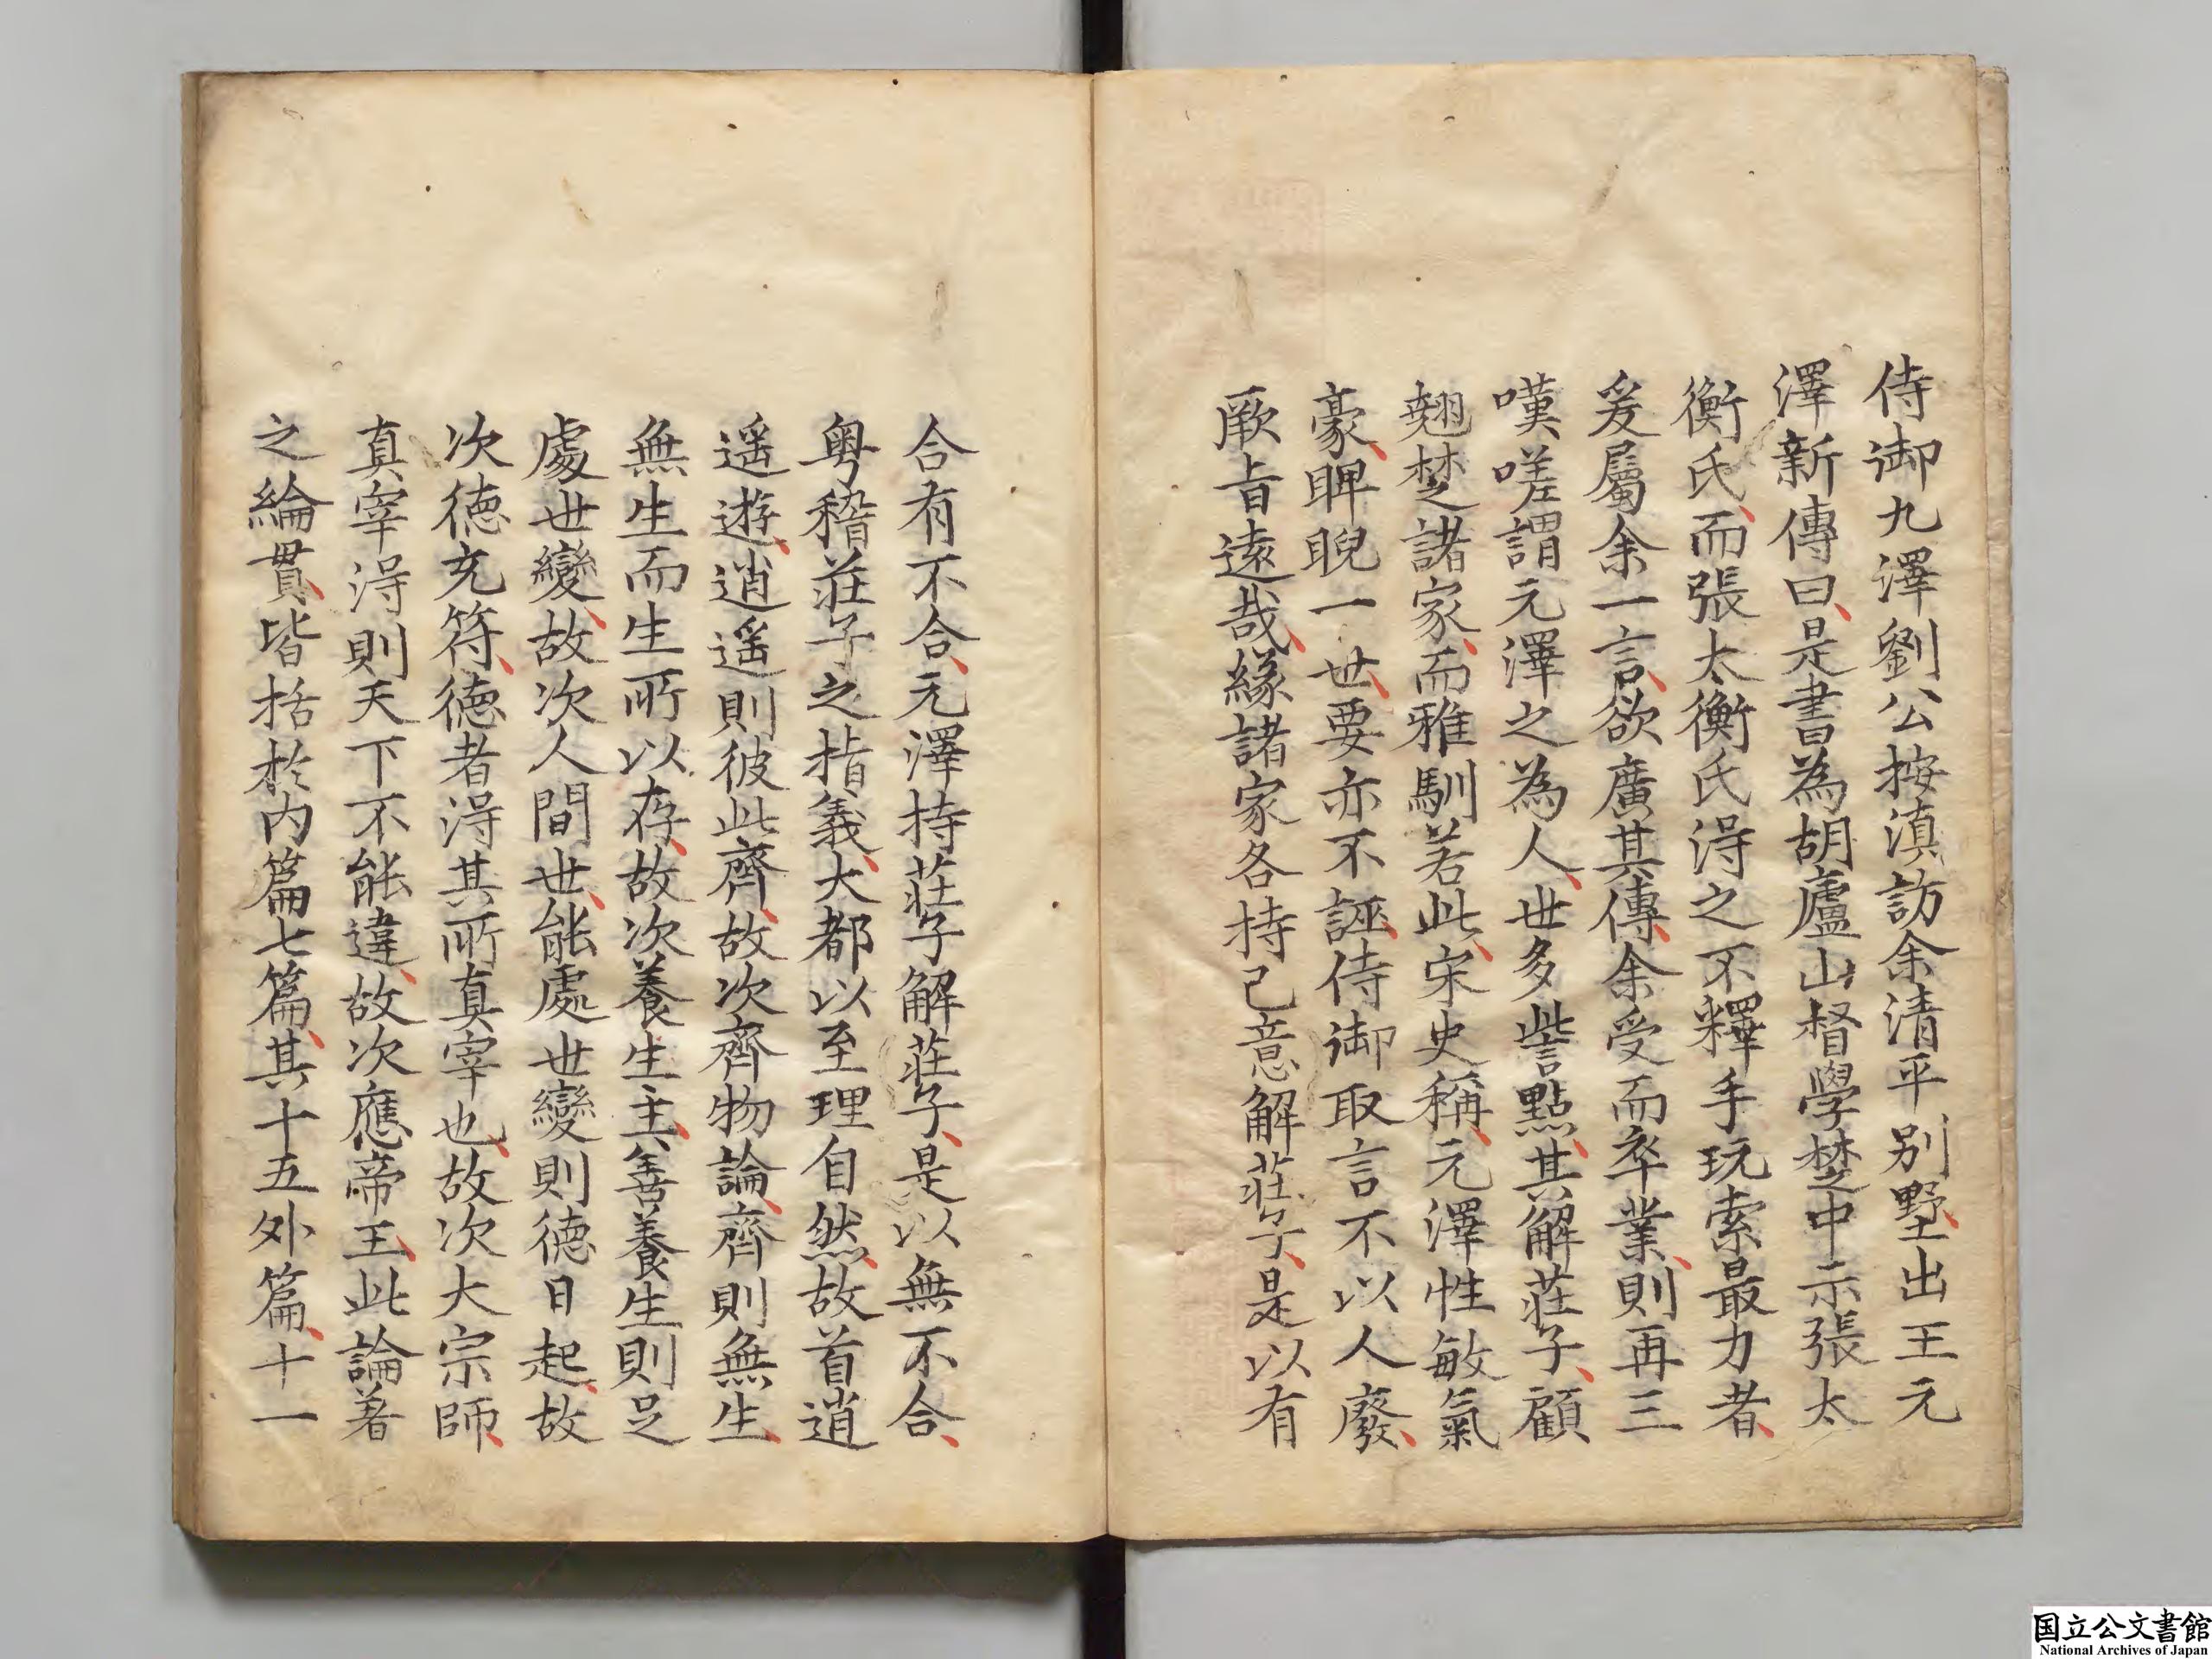 侍御九澤劉公按滇訪余清平別墅出王元
澤新傳曰是書為胡廬山督學楚中示張太
衡氏而張太衡氏淂之不釋手玩索最力者
爰屬余一言欲廣其傳余受而卒業則再三
嘆嗟謂元澤之為人世多訾點其解莊子顧
翹楚諸家而雅馴若此宋史稱元澤性敏氣
豪睥睨一世要亦不誣侍御取言不以人廢
厥旨遠哉緣諸家各持己意解莊子是以有
合有不合元澤持莊子解莊子是以無不合
粤稽莊子之指義大都以至理自然故首逍
遥遊逍遥則彼此齊故次齊物論齊則無生
無生而生所以存故次養生主善養生則足
處世變故次人間世能處世變則德日起故
次德充符德者淂其所真宰也故次大宗師
真宰淂則天下不能違故次應帝王此論著
之綸貫皆括於内篇七篇其十五外篇十一
国立公文書館
National Archives of Japan